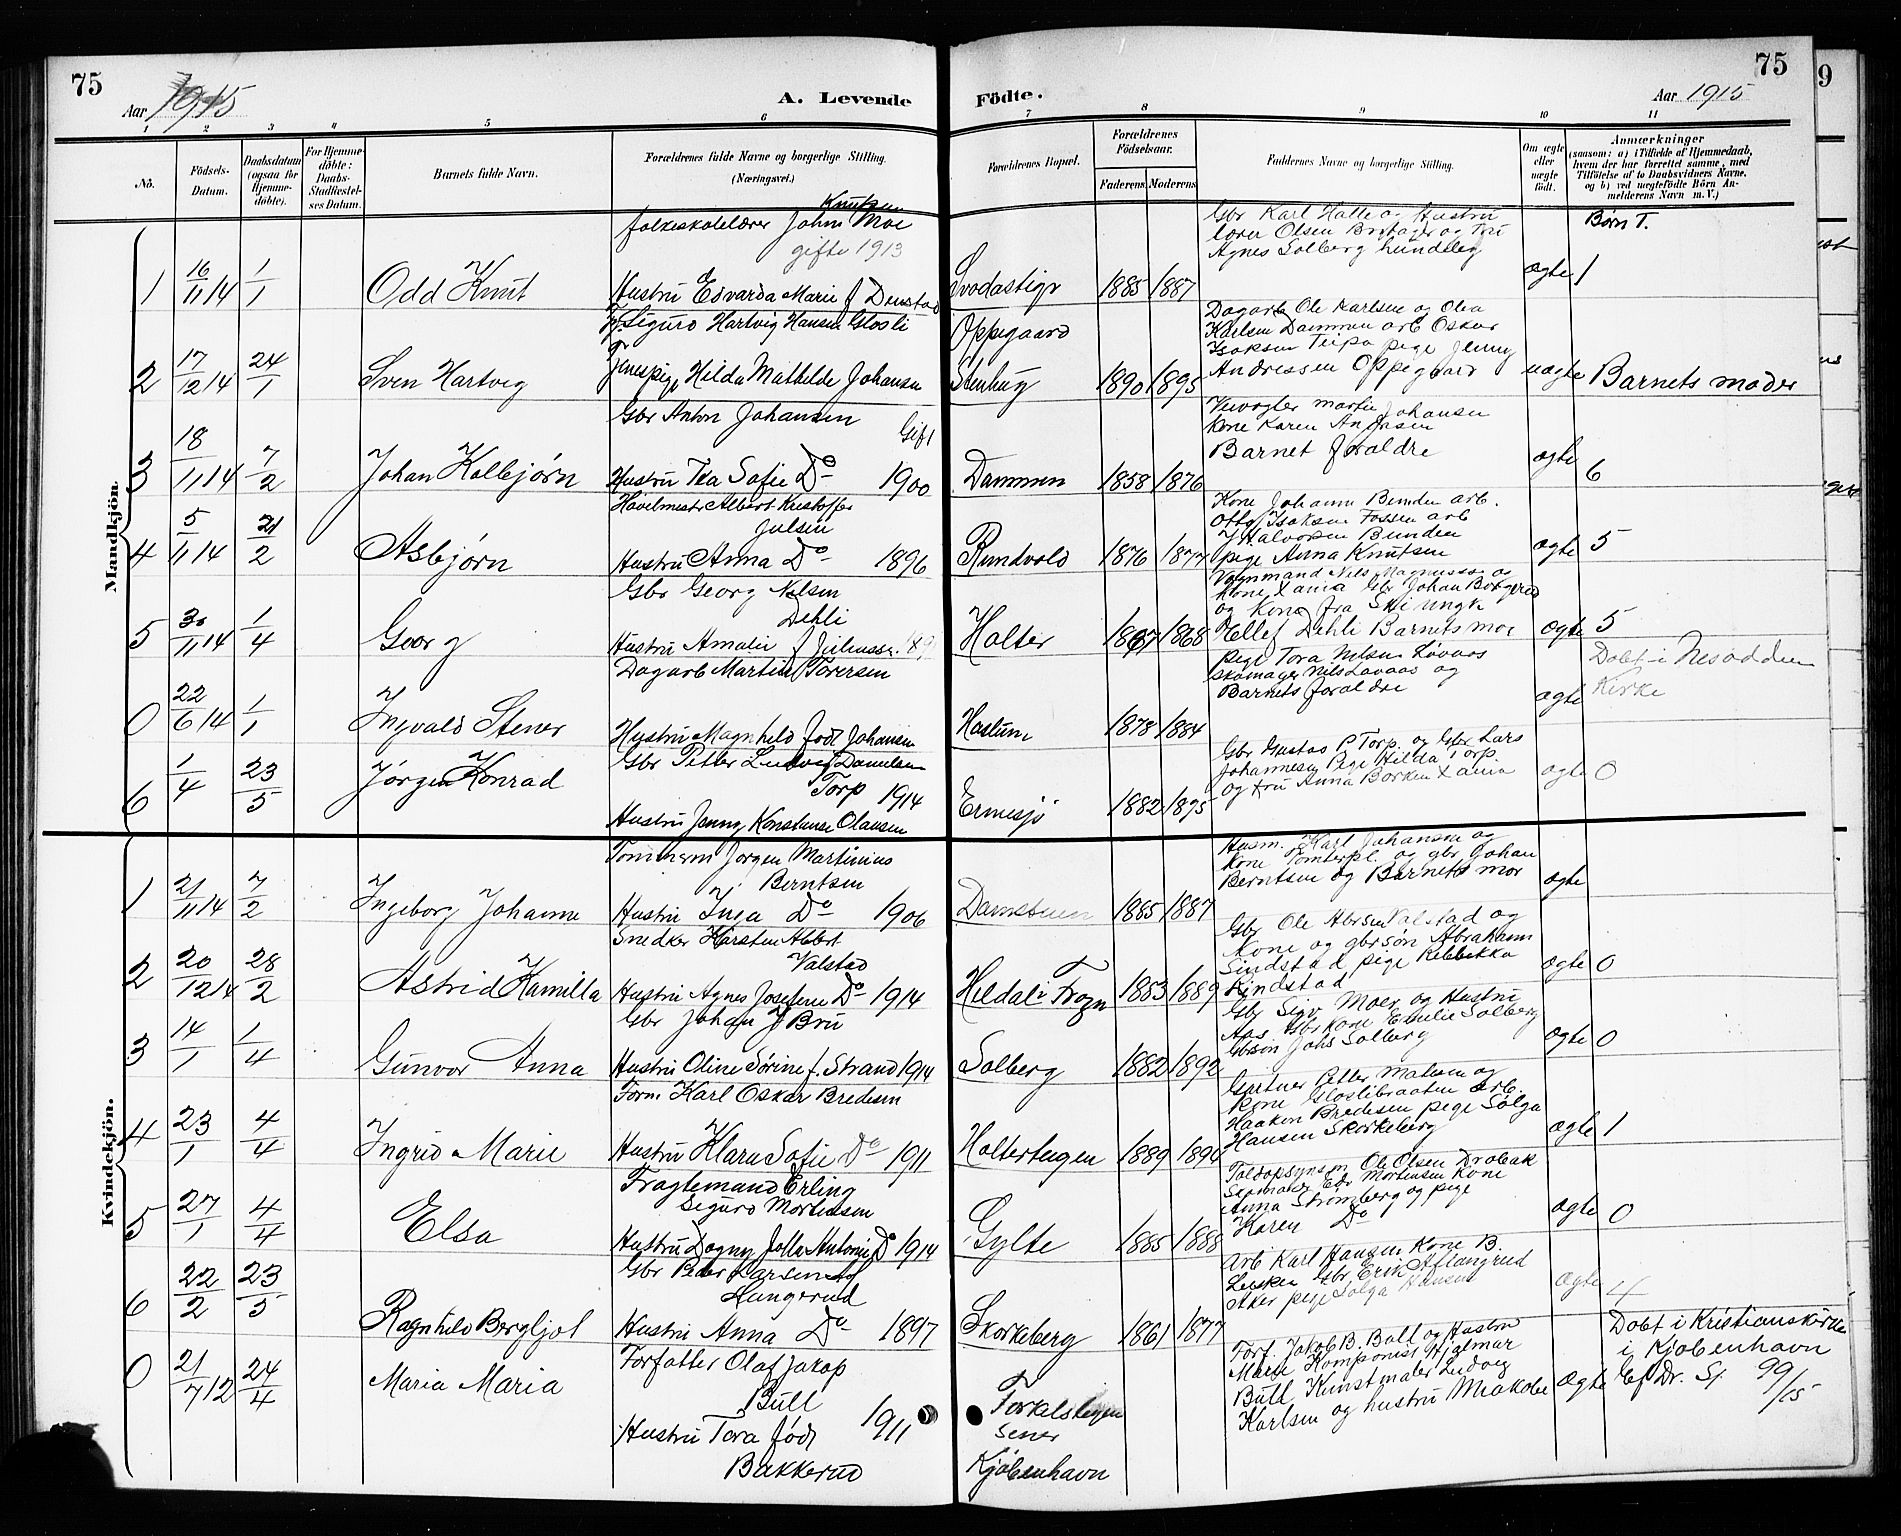 75
Aar 1915
A. Levende Födte.
Aar 1915
75
9
1 2 3 4 5 6 7 8 9 10 11
No.
Födsels-Datum.
Daabsdatum (ogsaa för Hjemme-döbte).
For Hjemme-döbte: Daabs-Stadfæstel-ses Datum.
Barnets fulde Navn.
Forældrenes fulde Navne og borgerlige Stilling. (Næringsvei.)
Forældrenes Bopæl.
Forældrenes Födselsaar.
Faderens. Moderens.
Faddernes Navne og borgerlige Stilling.
Om ægte eller uægte födt.
Anmærkninger
(saasom: a) i Tilfælde af Hjemmedaab, hvem der har forrettet samme, med Tilföielse af to Daabsvidners Navne, og b) ved uægtefödte Börn An-melderens Navn m.V.)
Børn T.
Mandkjön.
1 16/11 14 1/1 Odd Knut
folkeskolelærer Johan Knutsen Moe
gifte 1913
Hustru Edvarda Marie f Denstad
Svodastigr 1885 1887
Gbr Karl Halle og Hustru
lærer Olsen og Fru
Agnes Solberg
ægte 1
2 17/12 14 24/1 Sven Hartvig
Sigurd Hartvig Hansen Glosli
Tjenepige Hilda Mathilde Johansen
Oppegaard
Stenhug 1890 1895
Dagarb Ole Karlsen og Olea
Karlsen Dammen arb Oskar
Isaksen Teipa pige Jenny
Andressen Oppegaard
uægte Barnets moder
3 18/11 14 7/2 Johan Kolbjørn
Gbr Anton Johansen
Gift
Hustru Tea Sofie Do 1900
Dammen 1858 1876
Martin Johansen
kone Karen
Barnet foraldre
ægte 6
4 5/11 14 21/2 Asbjørn
Albert Kristoffer
Julsen
Hustru Anna Do 1896
Rundvold 1876 1877
Kone Johanne Bunden arb.
Otto Isaksen Fossen arb
J Halvorsen Bunden
pige Anna Knutsen
ægte 5
5 30/11 14 1/4 Georg
Gbr Georg Nilsen
Dehli
Hustru Amalie f
Holter 1867 1868
Vognmand Nils Magnussen og
Kone Xania Gbr Johan
og Kone fra Ski ungk
Ellef Dehli Barnets mor
ægte 5
0 22/6 14 1/1 Ingvald Stener
Dagarb Martin Toresen
Hustru Magnhild født Johansen
Haslum 1878 1884
pige Tora Nilsen Løvaas
skomager Nils Lavaas og
Barnets foraldre
ægte Døbt i Nesodden
Kirke
6 1/4 23/5 Jørgen Konrad
Gbr Petter Ludvig Danielsen
Torp 1914
Hustru Jenny Konstanse Olausen
Ermesjø 1882 1895
Gbr Gustav P Torp og Gbr Lars
Johannesen Pige Hilda Torp
og fru Anna Borken Xania
ægte 0
Kvindekjön.
1 21/11 14 7/2 Ingeborg Johanne
Tømmerm Jørgen Martinius
Berntsen
Hustru Inga Do 1906
Damstuen 1885 1887
Husm. Karl Johansen og
kone Tomterpl. og gbr Johan
Berntsen og Barnets mor
ægte
2 20/12 14 28/2 Astrid Kamilla
Snedker Karsten Albert
Valstad
Hustru Agnes Josefine Do 1914
Hildal i Frogn 1883 1889
Gbr Ole Valstad og
Kone og gbrsøn Abraham
Sindstad pige Rebekka
Rindstad
ægte 0
3 14/1 1/4 Gunvor Anna
Gbr Johan J Bru
Hustru Oline Sørine f. Strand 1914
Solberg 1882 1892
Gbr Sigv Moer og Hustru
Aas Gbrkone Emilie Solberg
Gbrsøn Johs Solberg
ægte 0
4 23/1 4/4 Ingrid Marie
Form Karl Oskar Bredesen
Hustru Klara Sofie Do 1911
Holterhagen 1889 1894
Gartner Petter Madsen og
Kone Gloslibraaten arb.
Haakon Bredesen pige Solga
Hansen Skorkeberg
ægte 1
5 27/1 4/4 Elsa
Fragtemand Erling
Sigurd Mortensen
Hustru Dagny Jolla Antonie Do 1914
Gylte 1885 1888
Toldopsynsm Ole Olsen Drøbak
Skomaker Edv Mortensen Kone
Anna Strømberg og pige
Karen Do
ægte 0
6 22/2 23/5 Ragnhild Bergljot
Gbr Peder Larsen
Hungerud
Hustru Anna Do 1897
Skorkeberg 1861 1877
Arb Karl Hansen Kone B.
Gbr. Erik
Aker pige Solga Hansen
ægte 4
0 21/7 12 24/4 Maria Maria
Forfatter Olaf Jakop
Bull 1911
Hustru Tora født
Bakkerud
Torkelstegen
sener
Kjøbenhavn
Forf. Jakob B. Bull og Hustru
Marie Komponist Hjalmar
Bull Kunstmaler Ludvig
Karlsen og hustru
ægte
Døbt i Kristianskirke
i Kjøbenhavn
Ef Dr. Sj 99/15